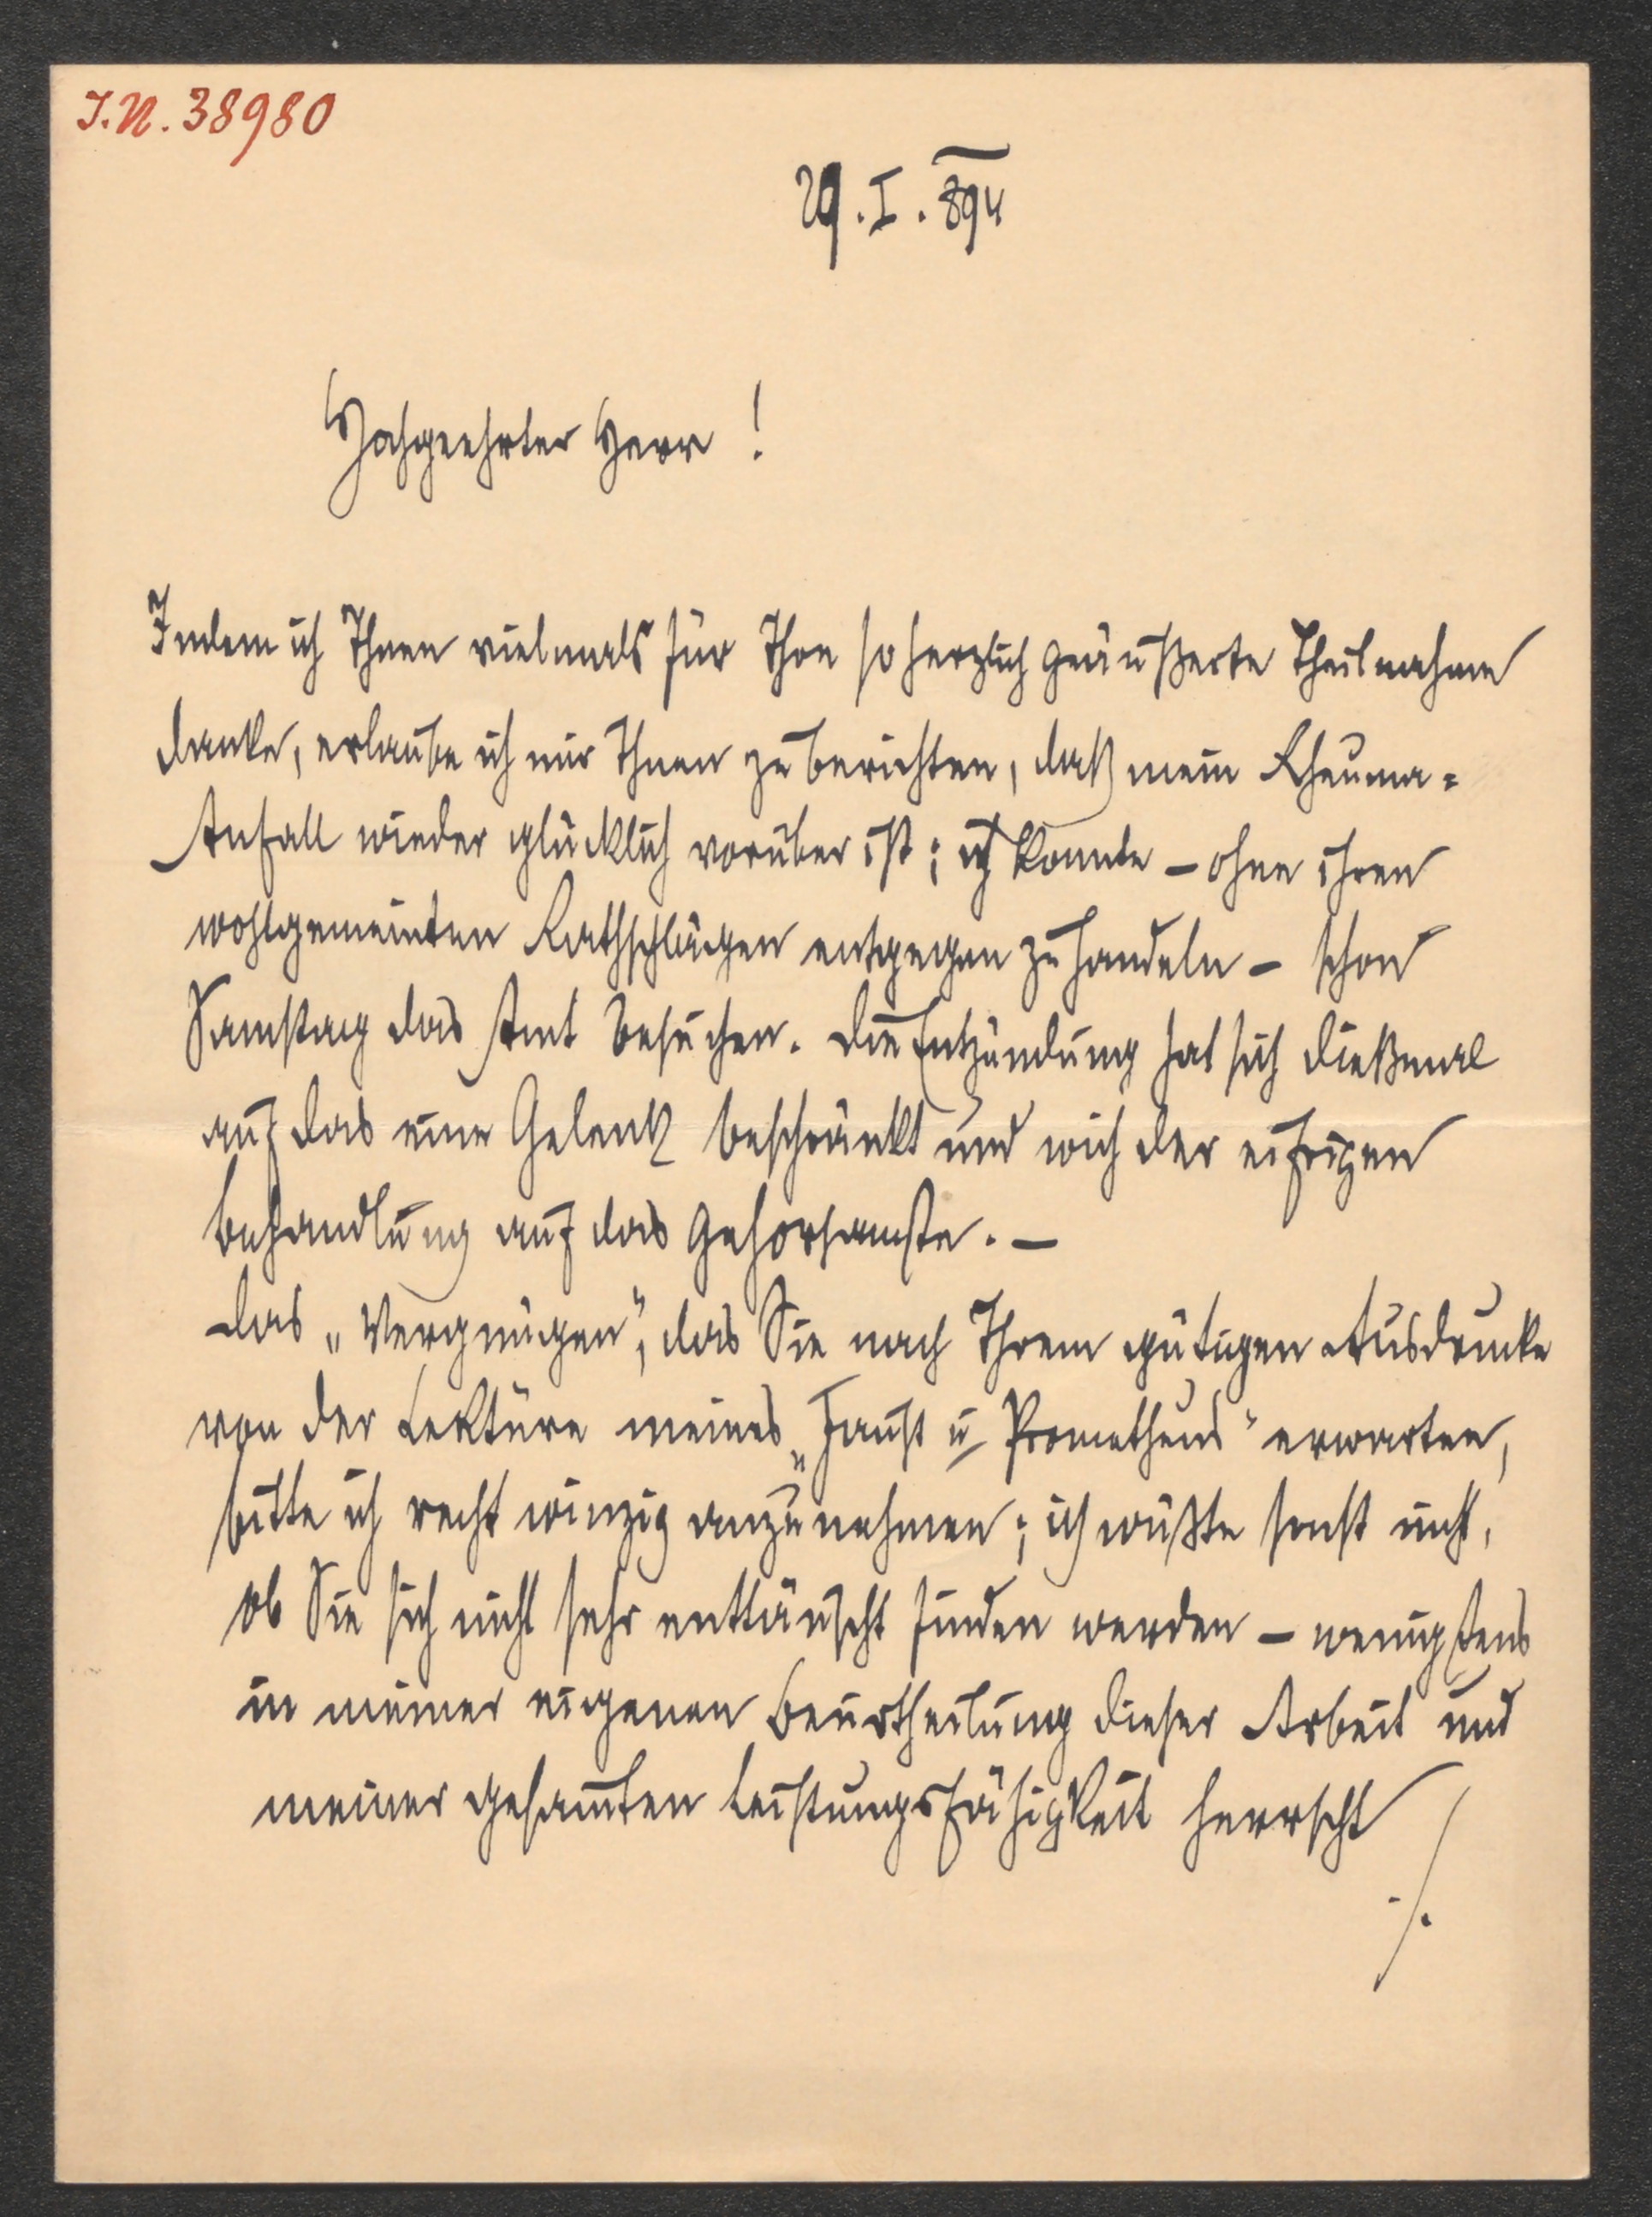 I.N. 38980
29. I. 894
Hochgeehrter Herr!
Indem ich Ihnen vielmals für Ihre so herzlich geäußerte Theilnahme
danke, erlaube ich mir Ihnen zu berichten, daß mein Rheuma-
Anfall wieder glücklich vorüber ist; ich konnte – ohne ihren
wohlgemeinten Rathschlägen entgegen zu handeln – schon
Samstag das Amt besuchen. Die Entzündung hat sich dießmal
auf das eine Gelenk beschränkt und wich der eifrigen
Behandlung auf das gehorsamste. –
Das „Vergnügen", das Sie nach Ihrem gütigen Ausdrucke
von der Lektüre meines „Faust u Prometheus" erwarten,
bitte ich recht winzig anzunehmen; ich wüßte sonst nicht,
ob Sie sich nicht sehr enttäuscht finden werden – wenigstens
in meiner eigenen Beurtheilung dieser Arbeit und
meiner gesam̅ten Leistungsfähigkeit herrscht
./.